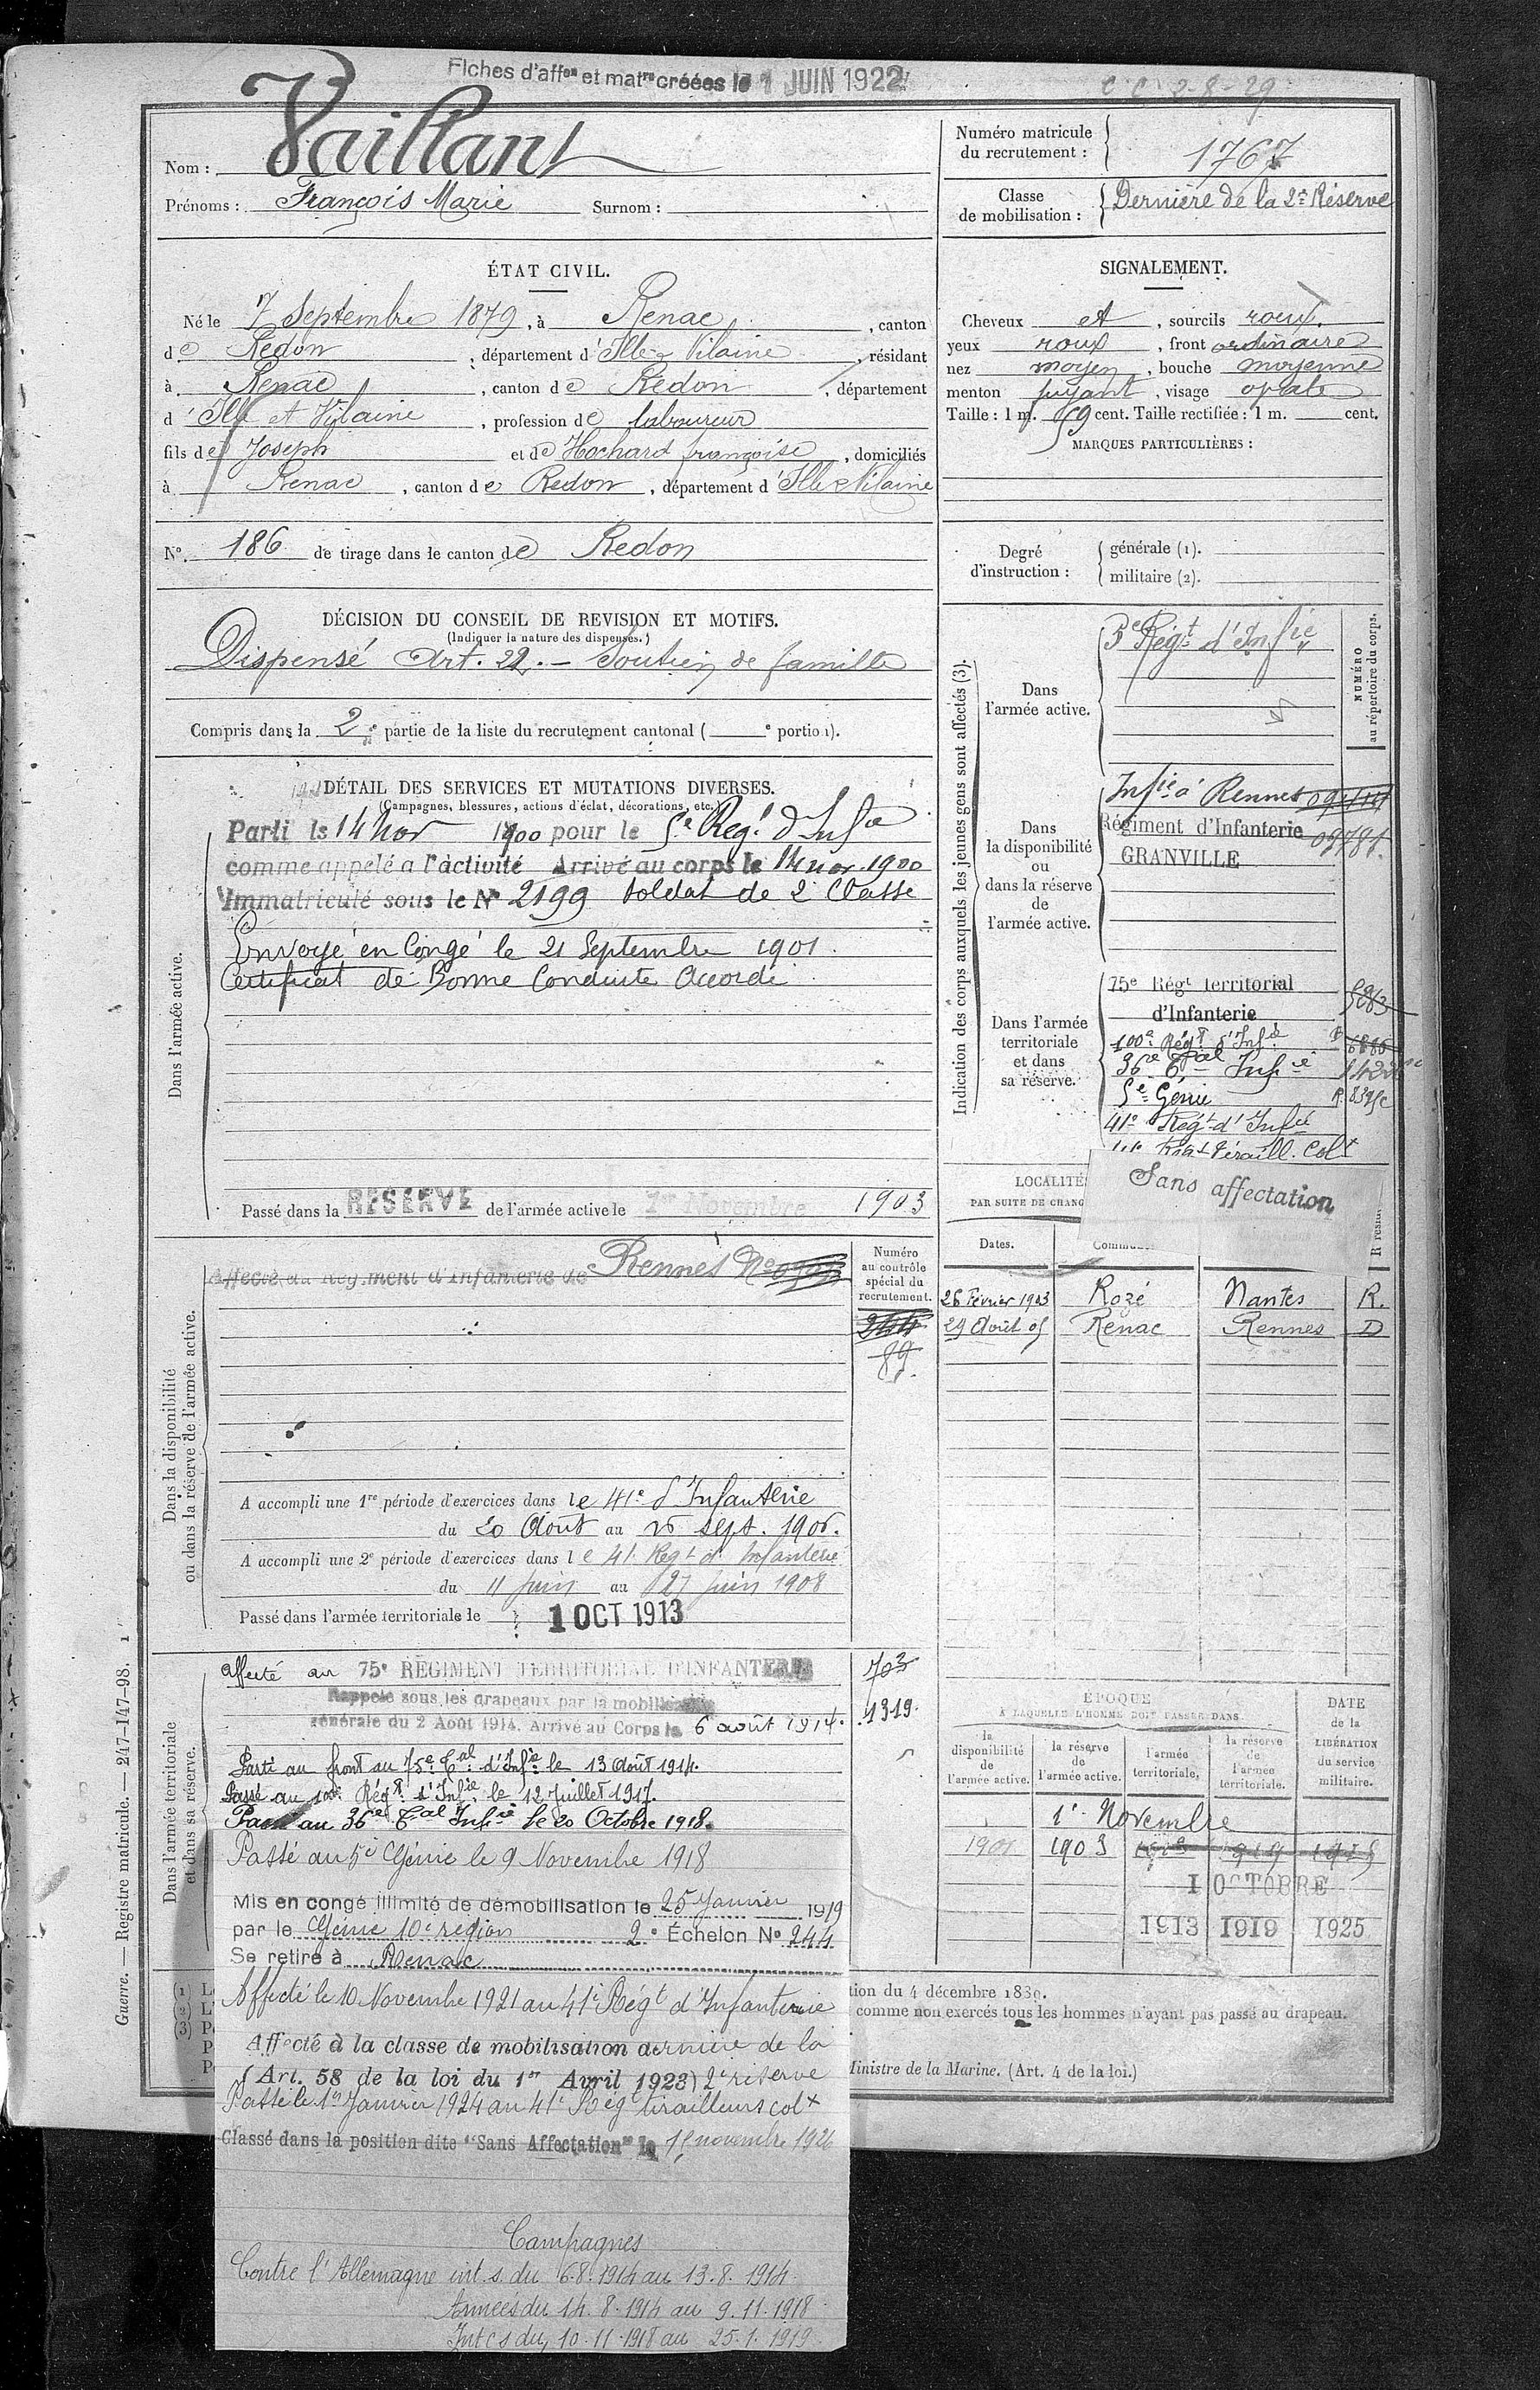 Fiches d'aff^on et mat^re créées le 1 JUIN 1922
C C 2-8-29
Nom : Vaillant
Prénoms : François Marie Surnom :
Numéro matricule
du recrutement : 1767
Classe
de mobilisation : Dernière de la 2e Réserve
ÉTAT CIVIL.
Né le 7 Septembre 1879, à Renac, canton
de Redon, département d'Ille-& Vilaine, résidant
à Renac, canton de Redon, département
d'Ille et Vilaine, profession de laboureur
fils de Joseph et de Hochard françoise, domiciliés
à Renac, canton de Redon, département d'Ille & Vilaine
N° 186 de tirage dans le canton de Redon
SIGNALEMENT.
Cheveux et, sourcils roux.
yeux roux, front ordinaire
nez moyen, bouche moyenne
menton fuyant, visage ovale
Taille : 1 m. 59 cent. Taille rectifiée : 1 m. cent.
MARQUES PARTICULIÈRES :
Degré
d'instruction :
générale (1).
militaire (2).
DÉCISION DU CONSEIL DE REVISION ET MOTIFS.
(Indiquer la nature des dispenses.)
Dispensé Art. 22. - Soutien de famille
Compris dans la 2e partie de la liste du recrutement cantonal ( e portion).
DÉTAIL DES SERVICES ET MUTATIONS DIVERSES.
(Campagnes, blessures, actions d'éclat, décorations, etc.)
Dans l'armée active.
Parti le 14 nov 1900 pour le 5e Reg.t d'Inf.ie
comme appelé à l'activité Arrivé au corps le 14 nov. 1900
Immatriculé sous le N° 2199 Soldat de 2e Classe
Envoyé en Congé le 21 Septembre 1901.
Certificat de Bonne Conduite Accordé
Passé dans la RESERVE de l'armée active le 1er Novembre 1903
Indication des corps auxquels les jeunes gens sont affectés (3).
NUMÉRO
au répertoire du corps.
Dans
l'armée active.
5e Régt d'Infie
Dans
la disponibilité
ou
dans la réserve
de
l'armée active.
Infie à Rennes
Régiment d'Infanterie 09781.
GRANVILLE
Dans l'armée
territoriale
et dans
sa réserve.
75e Régt Territorial
d'Infanterie 5083
100e Régt d'Infie
36e Tal Infie
5e Génie
41e Régt d'Infie
41e Régt Tiraill. Colx
LOCALITÉ
PAR SUITE DE CHANG
Sans affectation
Dates.
26 Février 1903 Rozé Nantes R.
29 Août 05 Renac Rennes D
Dans la disponibilité
ou dans la réserve de l'armée active.
Affecté au Régiment d'Infanterie de Rennes N°
Numéro
au contrôle
spécial du
recrutement.
244
89.
A accompli une 1re période d'exercices dans le 41e d'Infanterie
du 20 Août au 16 sept. 1906.
A accompli une 2e période d'exercices dans le 41 Regt d'Infanterie
du 11 juin au 27 juin 1908
Passé dans l'armée territoriale le 1 OCT 1913
Dans l'armée territoriale
et dans sa réserve.
Affecté au 75e RÉGIMENT TERRITORIAL D'INFANTERIE 703
Rappelé sous les drapeaux par la mobilisation
générale du 2 Août 1914. Arrivé au Corps le 6 août 1914. 1319.
Parti au front au 75e Tal d'Infie le 13 août 1914.
Passé au 100e Régt d'Infie le 12 Juillet 1917.
Passé au 36e Tal Infie le 20 Octobre 1918.
Passé au 5e Génie le 9 Novembre 1918
Mis en congé illimité de démobilisation le 25 Janvier 1919
par le Génie 10e région 2e Échelon N° 244
Se retire à Renac
Affecté le 10 Novembre 1921 au 41e Régt d'Infanterie
Affecté à la classe de mobilisation dernière de la
(Art. 58 de la loi du 1er Avril 1923) 2e réserve
Passé le 1er Janvier 1924 au 41e Régt tirailleurs colx
Classé dans la position dite "Sans Affectation" le 15 novembre 1926
Campagnes
Contre l'Allemagne int. s. du 6.8.1914 au 13.8.1914
Armées du 14.8.1914 au 9.11.1918
Intes du 10.11.1918 au 25.1.1919
ÉPOQUE
À LAQUELLE L'HOMME DOIT PASSER DANS
la
disponibilité
de
l'armée active.
la réserve
de
l'armée active.
l'armée
territoriale.
la réserve
de
l'armée
territoriale.
DATE
de la
LIBÉRATION
du service
militaire.
1er Novembre
1901 1903
1 OCTOBRE
1913 1919 1925
tion du 4 décembre 1889.
comme non exercés tous les hommes n'ayant pas passé au drapeau.
Ministre de la Marine. (Art. 4 de la loi.)
Guerre. — Registre matricule. — 247-147-98. 1